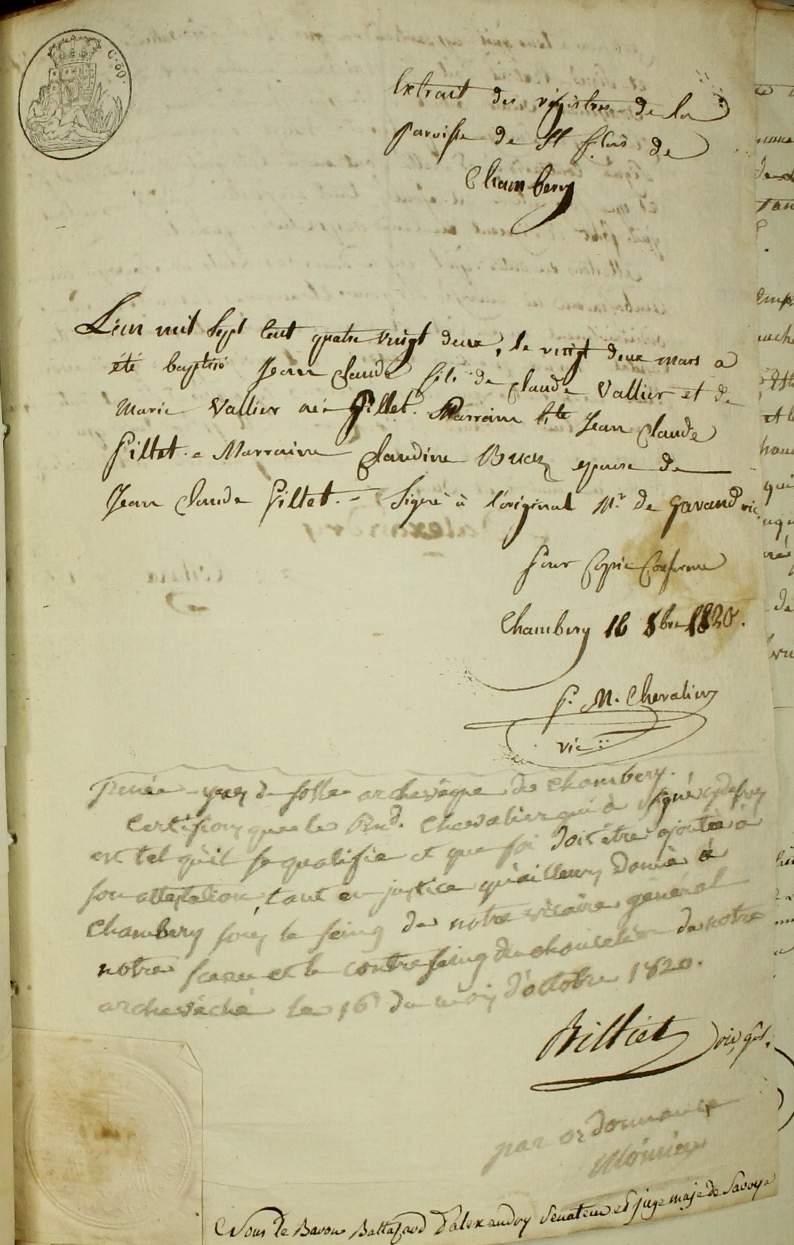 C. 60.
Extrait des registres de la
paroisse de St de
Chambery
L'an mil sept cent quatre vingt deux, le vingt deux mars a
été baptisé Jean Claude fils de Claude Vallier et de
Marie Vallier née Pillet. Parrain Jean Claude
Pillet. e Marraine Claudine epouse de
Jean Claude Pillet. - Signé à l'original Mr. de Gavand vic.
Pour Copie Conforme
Chambery 16 8bre 1820.
M. Chevalier
vic
archevêque de Chambery.
Certifions que le Rnd. Chevalier qui à signé
est tel qu'il se qualifie et que foi doit être ajoutée à
son attestation, tant en justice qu'ailleurs, donné à
Chambery sous le seing de notre vicaire général
notre sceau et le contre seing du chancelier de notre
archevêché le 16 du mois d'octobre 1820.
Billiet vic, gnl.
par ordonnance
Nous le Baron d'alexandry Senateur et juge maje de Savoye